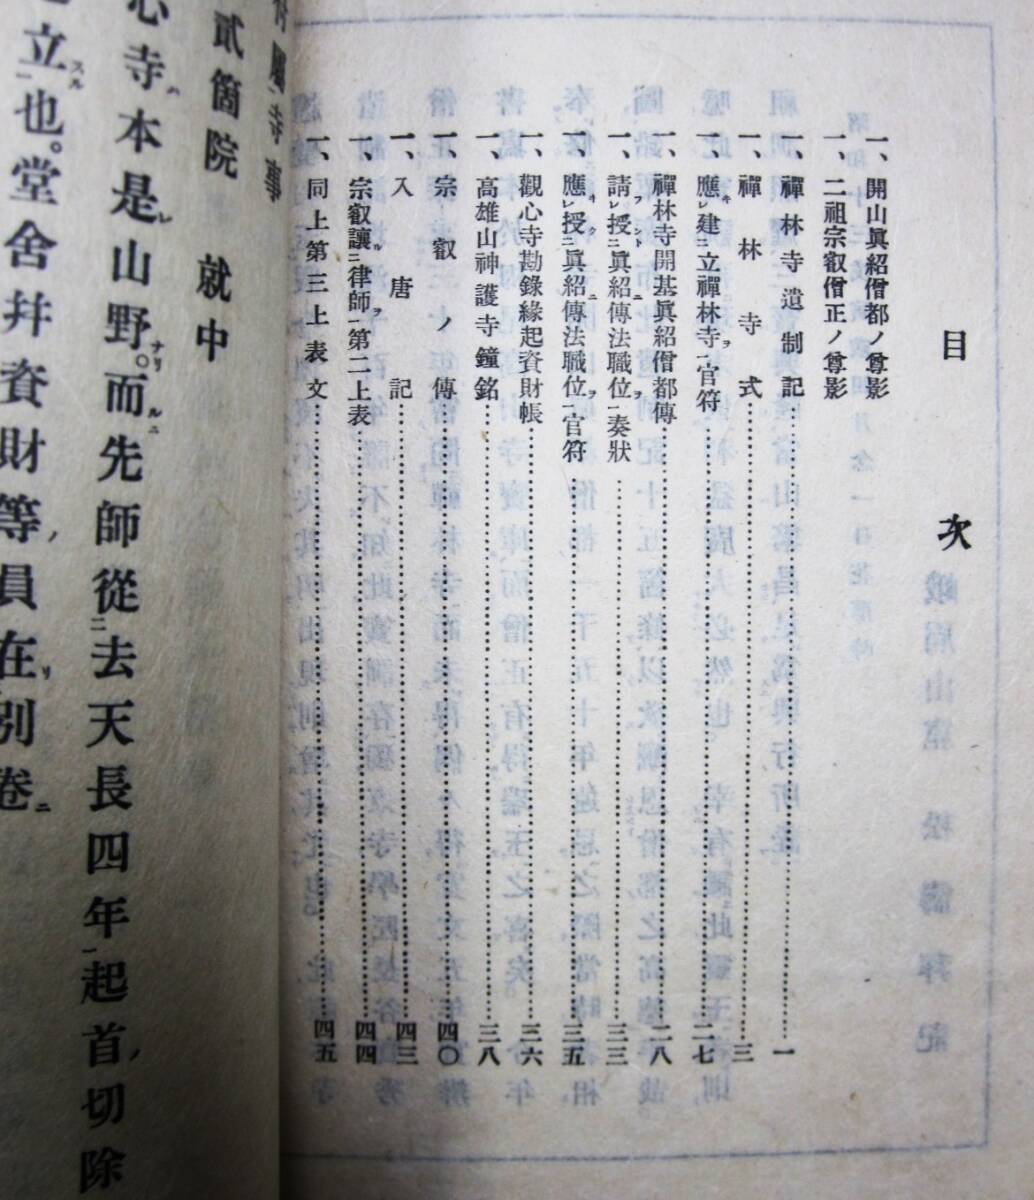 目次
一、開山眞紹僧都ノ尊影
一、二祖宗叡僧正ノ尊影
一、禪林寺遺制記…………一
一、禪林寺式…………三
一、應レキ建二立禪林寺一ヲ官符…………二七
一、禪林寺開基眞紹僧都傳…………二八
一、請レフント授二ニ眞紹傳法職位一ヲ奏狀…………三三
一、應レキ授二クニ眞紹傳法職位一ヲ官符…………三五
一、觀心寺勘錄緣起資財帳…………三六
一、高雄山神護寺鐘銘…………三八
一、宗叡ノ傳…………四〇
一、入唐記…………四三
一、宗叡讓二ル律師一ヲ第二上表…………四四
一、同上第三上表文…………四五
付屬寺事
貳箇院 就中
心寺ハ本是レ山野ナリ。而ルニ先師從二去天長四年一起首ノ切除
立スル一也。堂舍幷資財等ノ員在リ別卷ニ